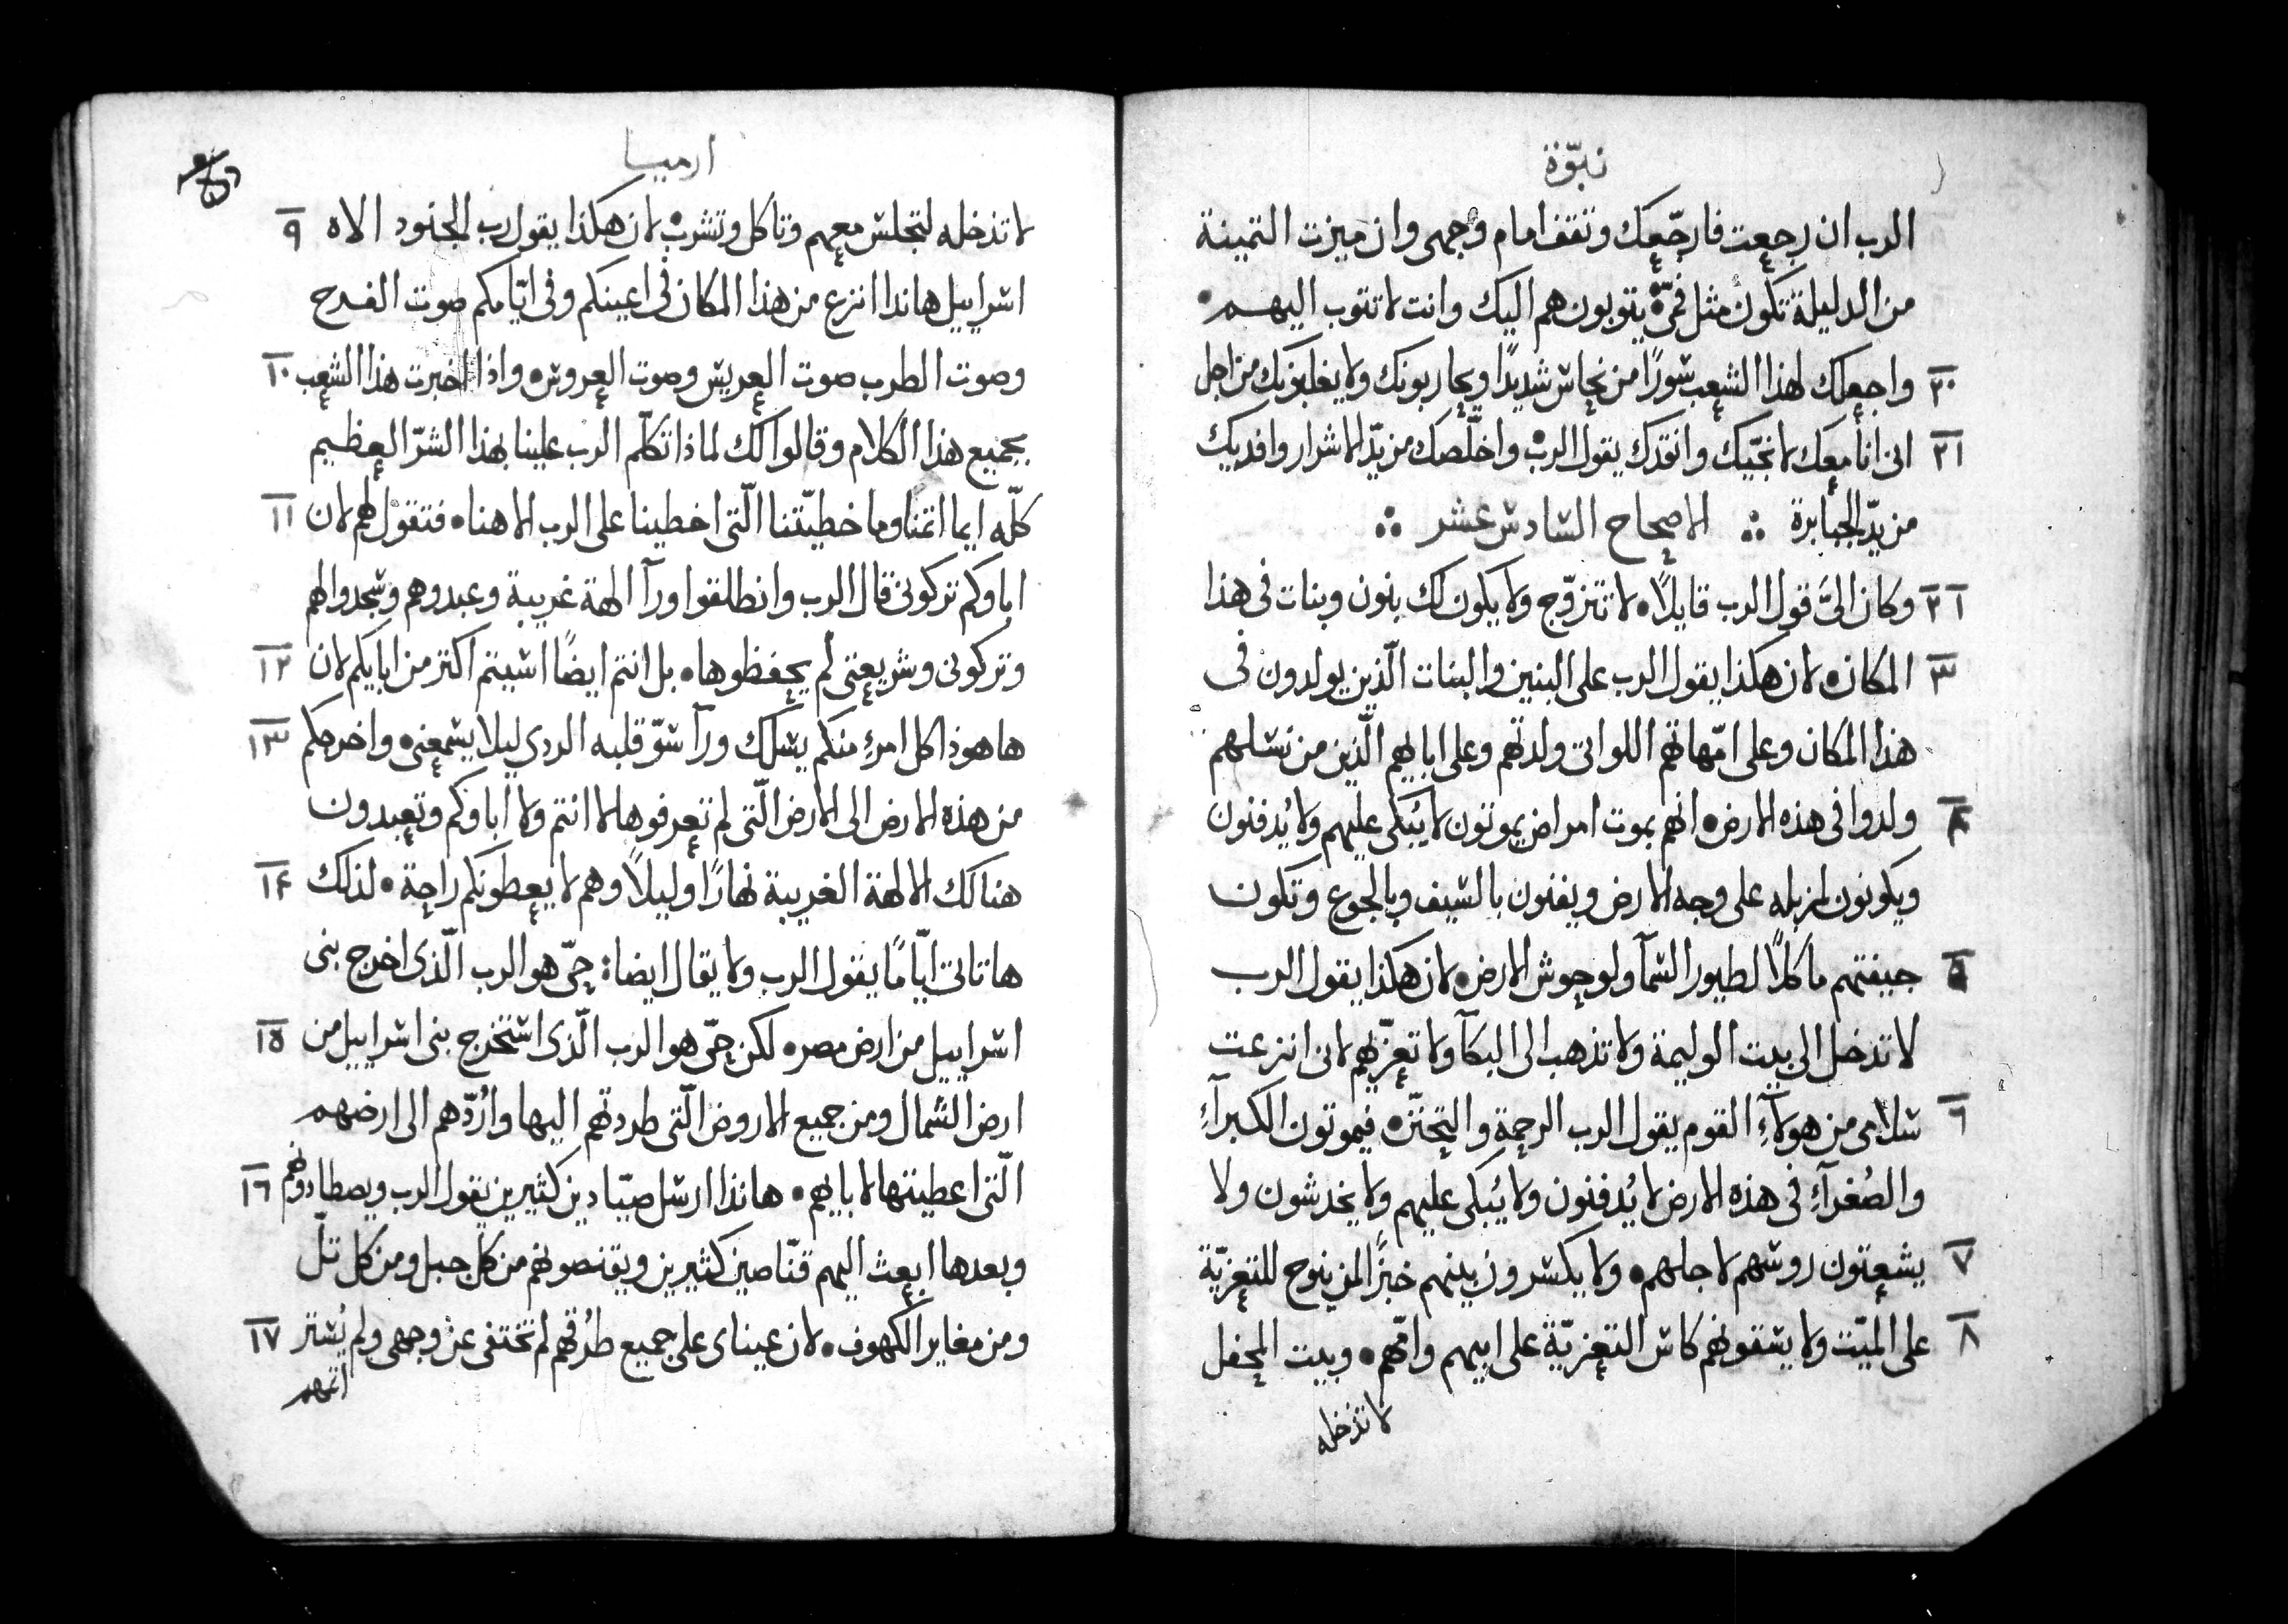 نبوّة
الرب ان رجعت فارجّعك وتقف امام وجهى وان ميزت الثمينة
من الدليلة تكون مثل فمى يتوبون هم اليك وانت لا تتوب اليهم
٢٠ واجعلك لهذا الشعب سورًا من نحاس شديدًا ويحاربونك ولا يغلبونك من اجل
٢١ انى انا معك لانجّيك وانقدك يقول الرب واخلّصك من يدّ الاشرار وافديك
من يدّ الجبابرة ∴ الاصحاح السادس عشر ∴
٢ ١ وكان الىَّ قول الرب قايلًا لا تتزوّج ولا يكون لك بنون وبنات فى هذا
٣ المكان لان هكذا يقول الرب على البنين والبنات الّذين يولدون فى
هذا المكان وعلى امّهاتهم اللواتى ولدتهم وعلى ابايهم الّذين من نسلهم
٤ ولدوا فى هذه الارض انهم بموت امراض يموتون لا يُبكى عليهم ولا يُدفنون
ويكونون لمزبله على وجه الارض ويفنون بالسيف وبالجوع وتكون
٥ جيفتهم ماكلًا لطيور السمآ ولوحوش الارض لان هكذا يقول الرب
لا تدخل الى بيت الوليمة ولا تذهب الى البكآ ولا تعزّيهم لانى انزعت
٦ سلامى من هولآءِ القوم يقول الرب الرحمة والتحنّن فيموتون الكبرآءِ
والصُغرآءِ فى هذه الارض لا يُدفنون ولا يُبكى عليهم ولا يخدشون ولا
٧ يشعتون روسهم لاجلهم ولا يكسرون بينهم خبزًا لمن ينوح للتعزيّة
٨ على الميّت ولا يسقونهم كاس التعزيّة على ابيهم وامّهم وبيت المحفل
لا تدخله
ارميا
لا تدخله لتجلس معهم وتاكل وتشرب لان هكذا يقول رب الجنود الاه ٩
اسراييل هاندا انزع من هذا المكان فى اعينكم وفى ايّامكم صوت الفرح
وصوت الطرب صوت العريس وصوت العروس واذا اخبرت هذا الشعب ١٠
بجميع هذا الكلام وقالوا لك لماذا تكلّم الرب علينا بهذا الشرّ العظيم
كلّه ايما اثمنا وما خطيّتنا الّتى اخطينا على الرب الاهنا فتقول لهم لان ١١
اباوكم تركونى قال الرب وانطلقوا ورآ الهة غريبة وعبدوهم وسجدوا لهم
وتركونى وشريعتى لم يحفظوها بل انتم ايضًا اسيتم اكثر من ابايكم لان ١٢
هاهوذا كل امرءِ منكم يسلك ورآ سوّ قلبه الردى ليلا يسمعنى واخرجكم ١٣
من هذه الارض الى الارض الّتى لم تعرفوها لا انتم ولا اباوكم وتعبدون
هنالك الالهة الغريبة نهارًا وليلًا وهم لا يعطونكم راحة لذلك ١٤
ها تاتى ايّامًا يقول الرب ولا يقال ايضا: حىّ هو الرب الّذى اخرج بنى
اسراييل من ارض مصر لكن حىّ هو الرب الّذى استخرج بنى اسراييل من ١٥
ارض الشمال ومن جميع الاروض الّتى طردتهم اليها وارُدّهم الى ارضهم
الّتى اعطيتها لابايهم هانذا ارسل صيّادين كثيرين يقول الرب ويصطادونهم ١٦
وبعدها ابعث اليهم قنّاصين كثيرين ويقنصونهم من كل جبل ومن كل تلّ
ومن مغاير الكهوف لان عيناى على جميع طرُقهم لم تختفى عن وجهى ولم يُستر ١٧
اثمهم